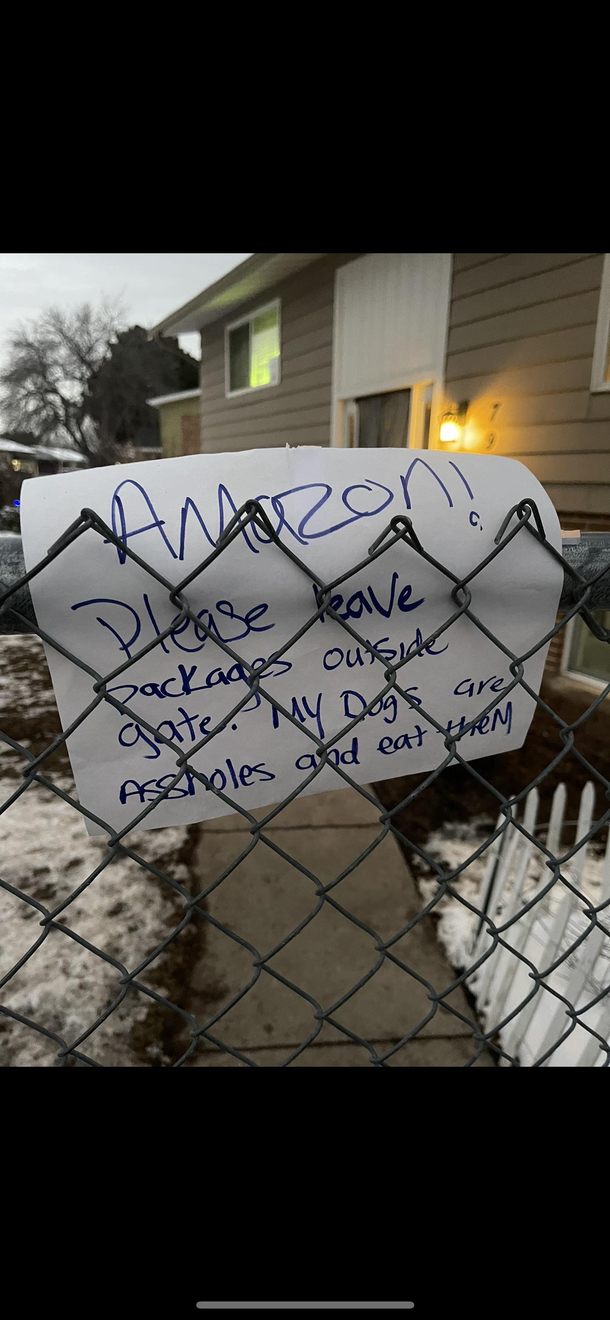 Amazon!
Please leave
packages outside
gate. My Dogs are
Assholes and eat them
7
9